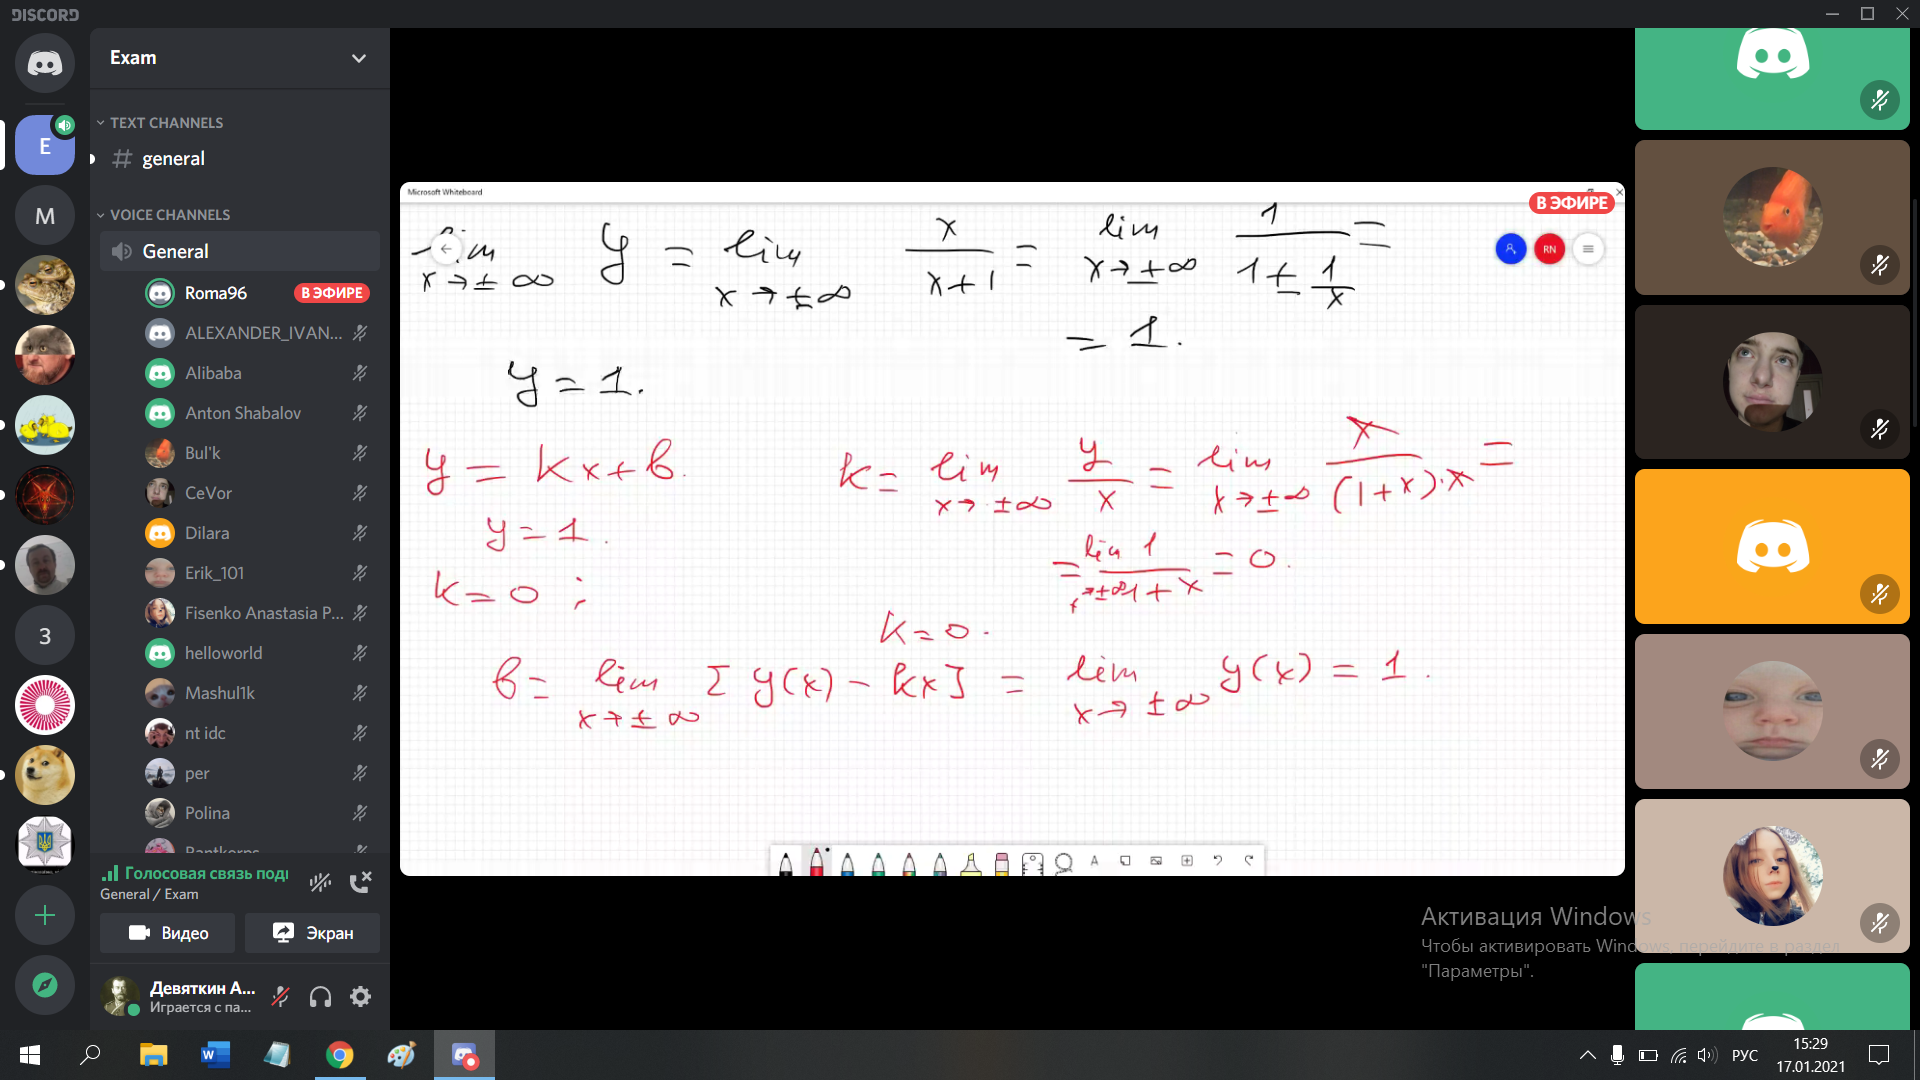 DISCORD
Exam
TEXT CHANNELS
# general
VOICE CHANNELS
General
Roma96 В ЭФИРЕ
ALEXANDER_IVAN...
Alibaba
Anton Shabalov
Bul'k
CeVor
Dilara
Erik_101
Fisenko Anastasia P...
helloworld
Mashul1k
nt idc
per
Polina
E
M
3
Голосовая связь под
General / Exam
Видео
Экран
Девяткин А...
Играется с па...
Microsoft Whiteboard
В ЭФИРЕ
RN
lim x→±∞ y = lim x→±∞ x/(x+1) = lim x→±∞ 1/(1±1/x) =
= 1.
y = 1.
y = kx+b. k = lim x→±∞ y/x = lim x→±∞ x/((1+x)·x) =
y = 1. = lim x→±∞ 1/(1+x) = 0.
k = 0 ;
k = 0.
b = lim x→±∞ [y(x) − kx] = lim x→±∞ y(x) = 1.
A
Активация Windows
Чтобы активировать Windows, перейдите в раздел
"Параметры".
РУС
15:29
17.01.2021